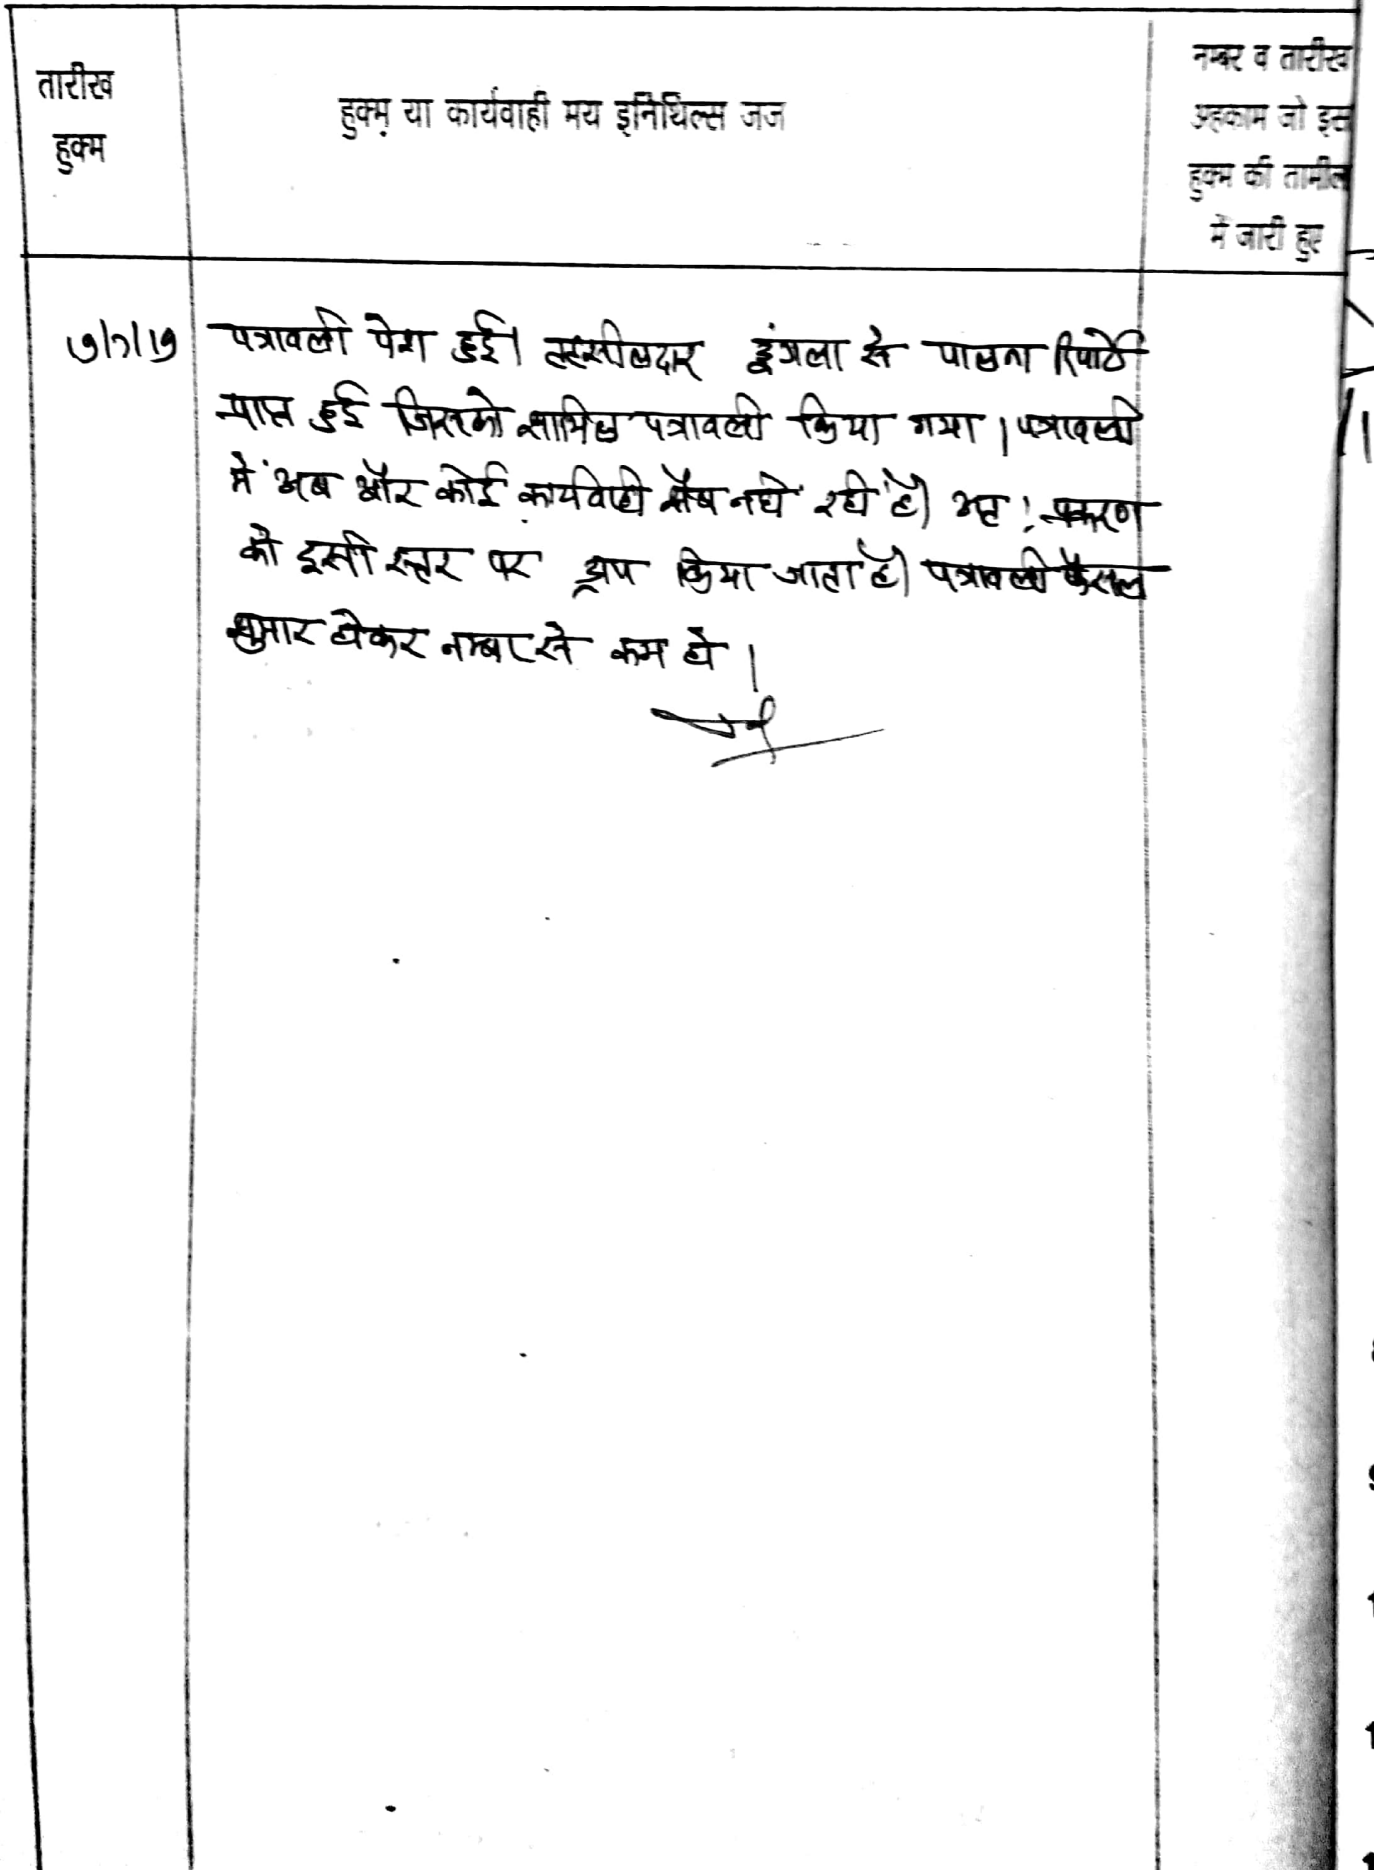 तारीख
हुक्म
हुक्म या कार्यवाही मय इनिशिल्स जज
नम्बर व तारीख
अहकाम जो इस
हुक्म की तामील
में जारी हुए
पत्रावली पेश हुई। तहसीलदार डूंगला से पालना रिपोर्ट
प्राप्त हुई जिसको शामिल पत्रावली किया गया। पत्रावली
में अब और कोई कार्यवाही शेष नही रही है। अतः प्रकरण
को इसी स्तर पर ड्राप किया जाता है। पत्रावली फैसल
शुमार होकर नम्बर से कम हो।